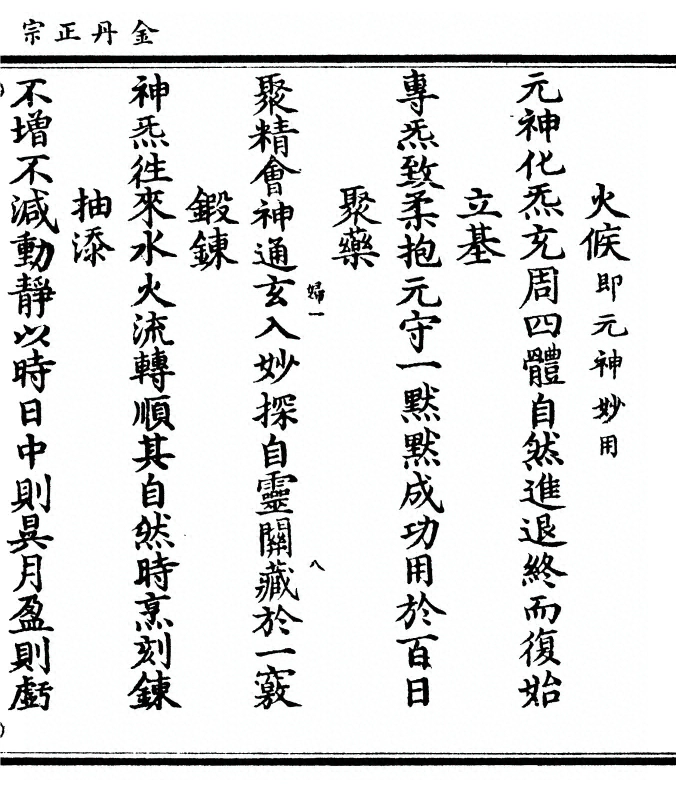 金丹正宗
火候即元神妙用
元神化炁充周四體自然進退終而復始
立基
專炁致柔抱元守一默默成功用於百日
聚藥
聚精會神通玄入妙探自靈關藏於一竅
婦一
八
鍛鍊
神炁往來水火流轉順其自然時烹刻鍊
抽添
不增不減動靜以時日中則昃月盈則虧